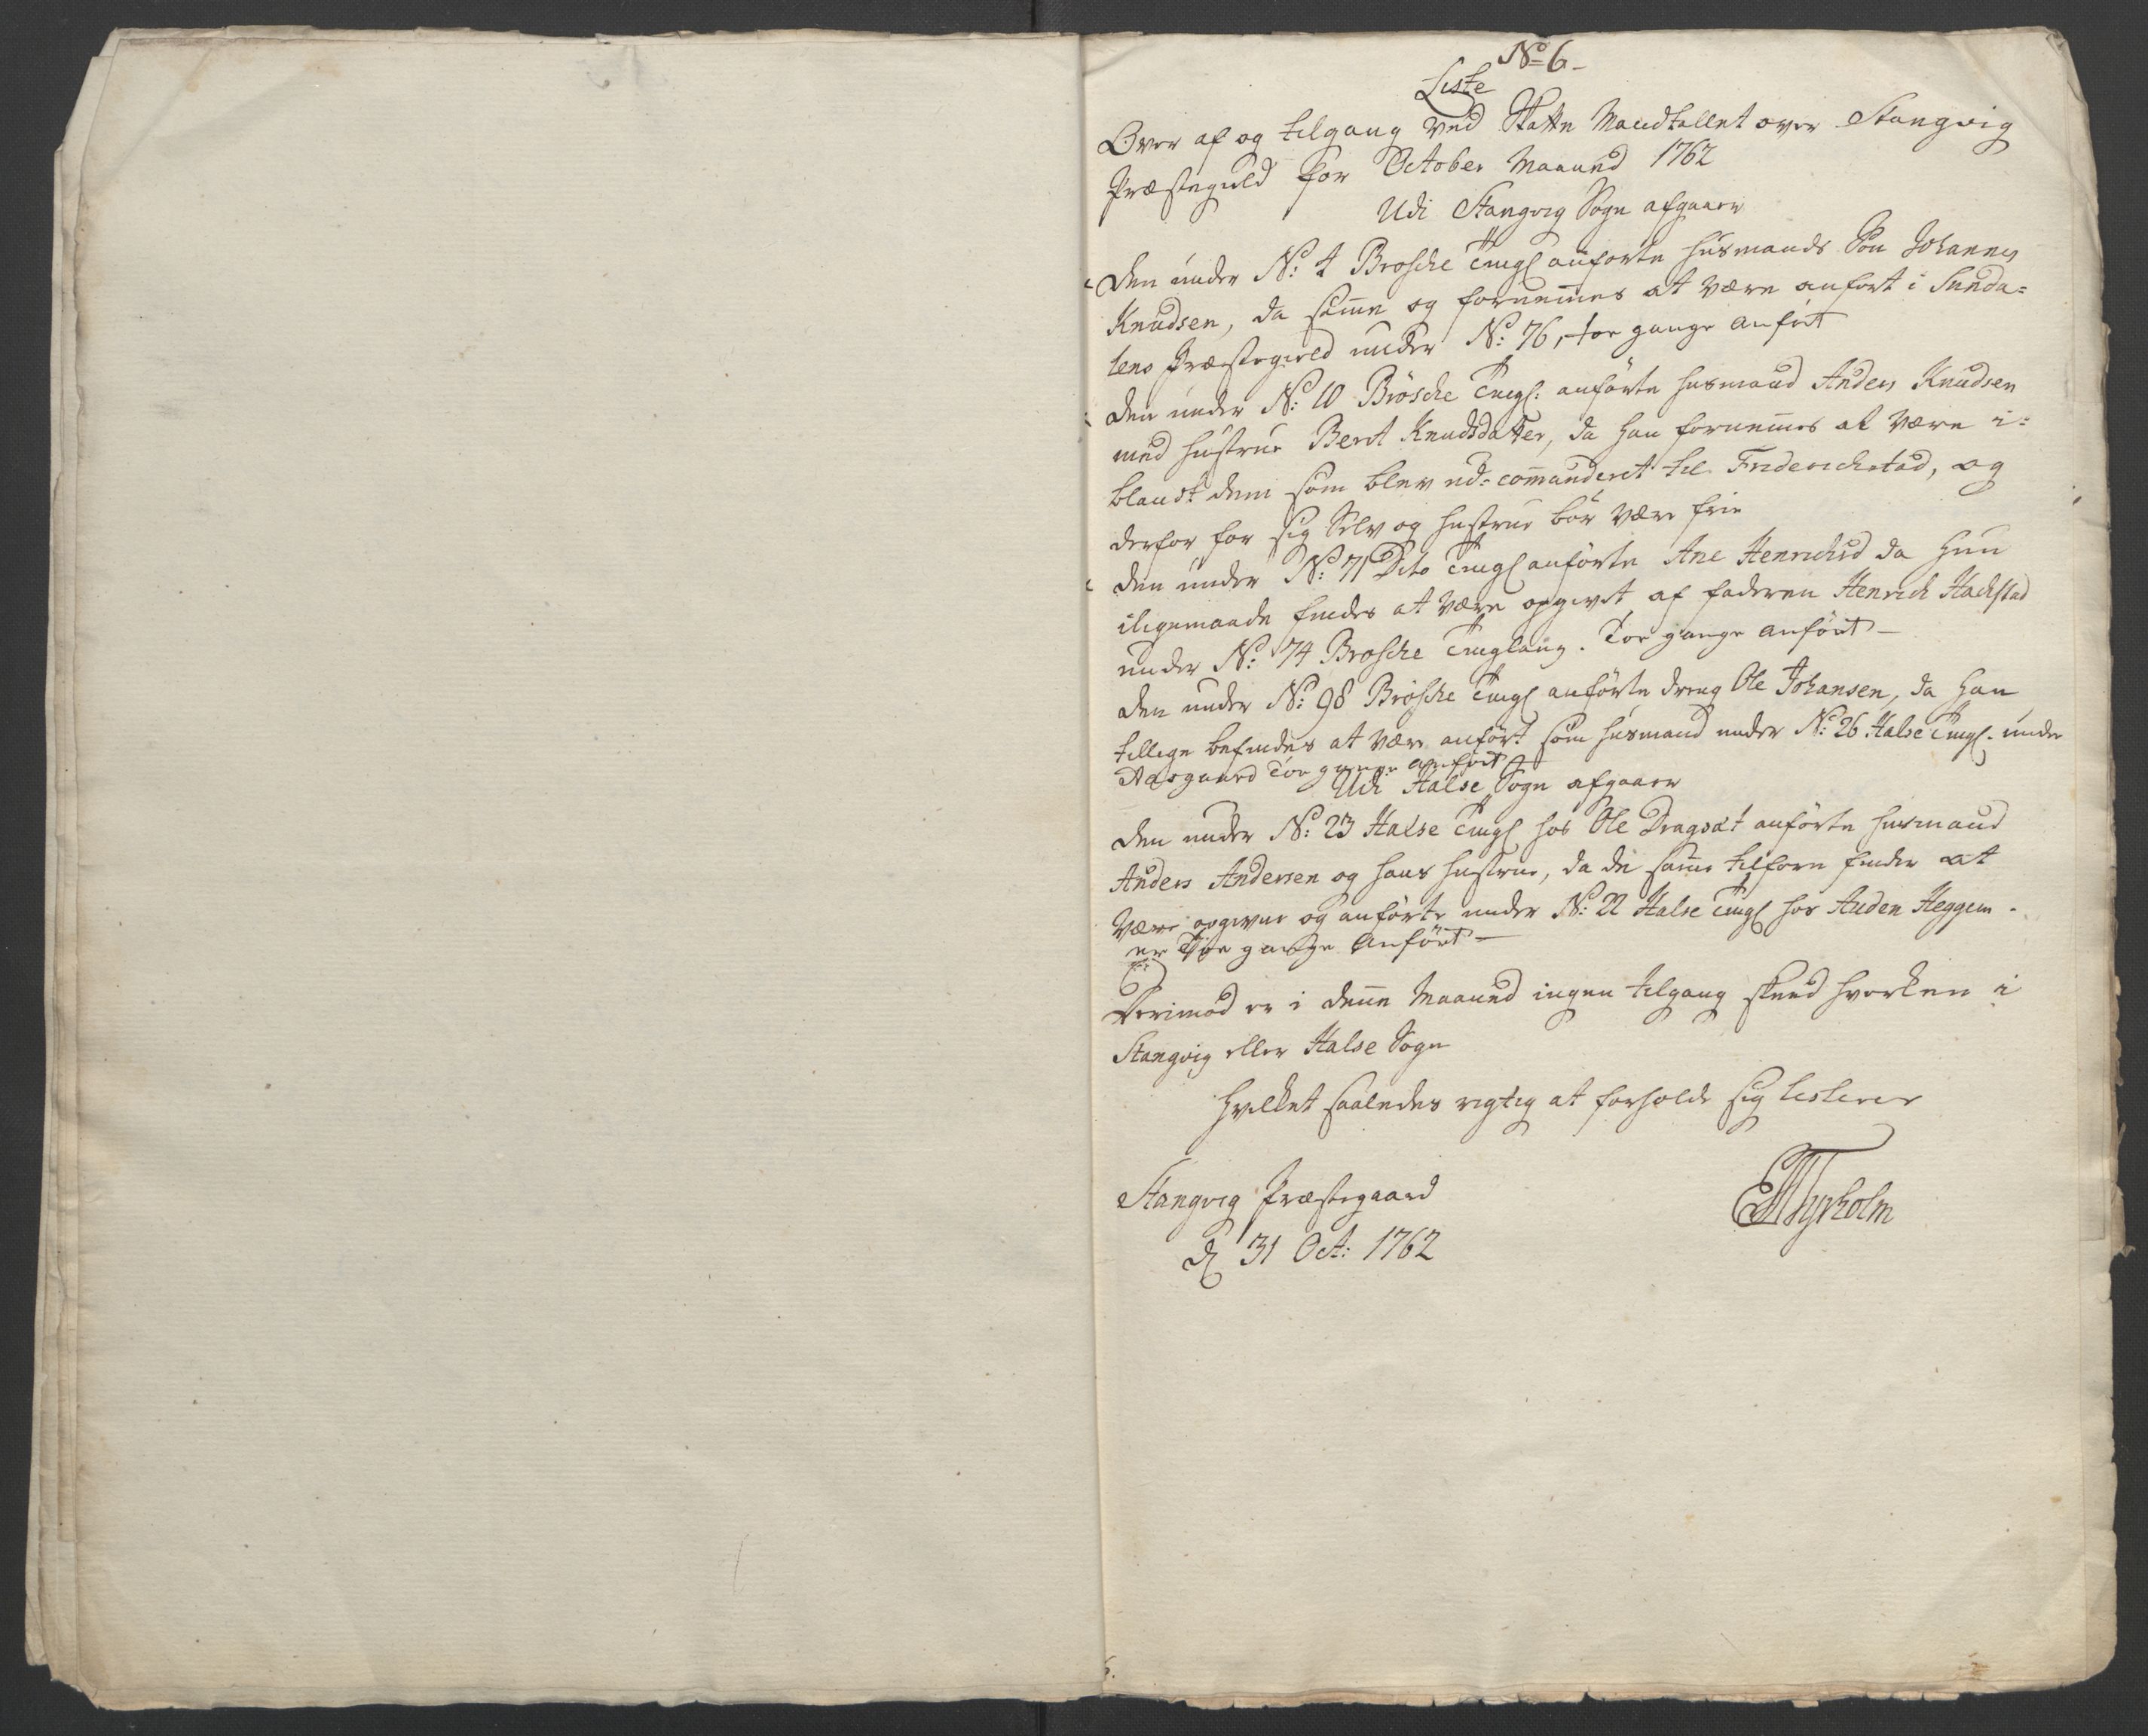 No 6-
Liste
Over af og tilgang ved Skatte Mandtallet over Stangvig
Præstegield for October Maaned 1762
Udi Stangvig Sogn afgaaer
Den under No: 4 Brøsche Tingl anførte Husmands Søn Johannes
Knudsen, da samme og fornemmes at være anført i Sunda-
lens Præstegield under No: 76, toe gange anført
Den under No: 10 Brøsche Tingl: anførte Husmand Anders Knudsen
med Hustrue Berit Knudsdatter, da han fornemmes at være i-
blandt dem som blev ud-commanderet til Friderichstad, og
derfor for sig Selv og Hustrue bør være frie
Den under No: 71 Dito Tingl anførte Ane Henrichsd da hun
iligemaade findes at være opgivet af faderen Henrich Hachstad
under No: 74 Brøsche Tinglaug. Toe gange anført-
Den under No: 98 Brøsche Tingl anførte dreng Ole Johansen, da han
tillige befindes at være anført som Husmand under No: 26 Halse Tingl. under
Aasgaard Toe gange anført
Udi Halse Sogn afgaaer
Den under No: 23 Halse Tingl hos Ole Dragsæt anførte Husmand
Anders Andersen og hans Hustrue, da de samme tilforn findes at
være opgivne og anførte under No: 22 Halse Tingl hos Auden Heggem.
er Toe gange Anført-
Derimod er i denne Maaned ingen tilgang skeed hverken i
Stangvig eller Halse Sogn
Hvilket saaledes rigtig at forholde sig testerer
Stangvig Præstegaard
d 31 Oct: 1762
Tyrholm